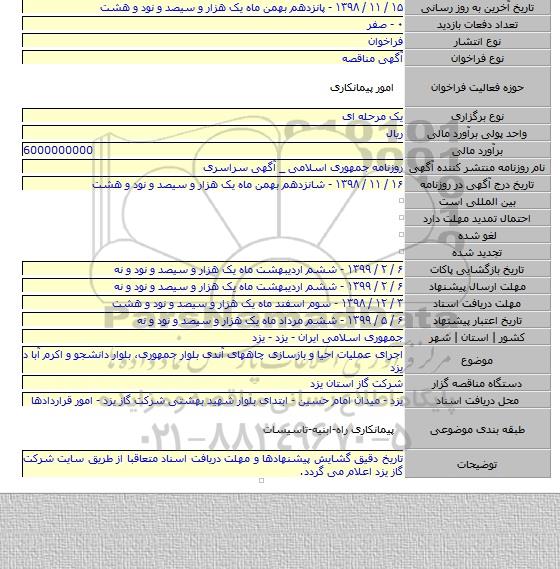 تاریخ آخرین به روز رسانی ۱۵ / ۱۱ / ۱۳۹۸ - پانزدهم بهمن ماه یک هزار و سیصد و نود و هشت
تعداد دفعات بازدید ۰ - صفر
نوع انتشار فراخوان
نوع فراخوان آگهی مناقصه
حوزه فعالیت فراخوان امور پیمانکاری
نوع برگزاری یک مرحله ای
واحد پولی برآورد مالی ریال
برآورد مالی 6000000000
نام روزنامه منتشر کننده آگهی روزنامه جمهوری اسلامی _ آگهی سراسری
تاریخ درج آگهی در روزنامه ۱۶ / ۱۱ / ۱۳۹۸ - شانزدهم بهمن ماه یک هزار و سیصد و نود و هشت
بین المللی است
احتمال تمدید مهلت دارد
لغو شده
تجدید شده
تاریخ بازگشایی پاکات ۶ / ۲ / ۱۳۹۹ - ششم اردیبهشت ماه یک هزار و سیصد و نود و نه
مهلت ارسال پیشنهاد ۶ / ۲ / ۱۳۹۹ - ششم اردیبهشت ماه یک هزار و سیصد و نود و نه
مهلت دریافت اسناد ۳ / ۱۲ / ۱۳۹۸ - سوم اسفند ماه یک هزار و سیصد و نود و هشت
تاریخ اعتبار پیشنهاد ۶ / ۵ / ۱۳۹۹ - ششم مرداد ماه یک هزار و سیصد و نود و نه
کشور | استان | شهر جمهوری اسلامی ایران - یزد - یزد
موضوع اجرای عملیات احیا و بازسازی چاههای آندی بلوار جمهوری، بلوار دانشجو و اکرم آبا د
یزد
دستگاه مناقصه گزار شرکت گاز استان یزد
محل دریافت اسناد یزد - میدان امام حسین - ابتدای بلوار شهید بهشتی شرکت گاز یزد - امور قراردادها
طبقه بندی موضوعی پیمانکاری راه-ابنیه-تاسیسات
توضیحات تاریخ دقیق گشایش پیشنهادها و مهلت دریافت اسناد متعاقبا از طریق سایت شرکت
گاز یزد اعلام می گردد.
۰۲۱-۸۸۳۴۹۶۷۰-۵